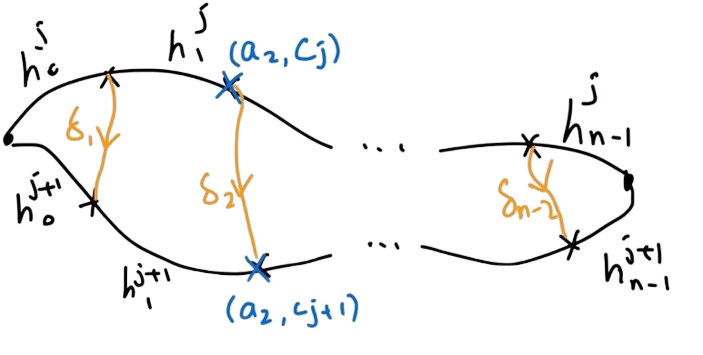 h_0^j
h_1^j
(a_2, c_j)
δ_1
δ_2
...
h_{n-1}^j
δ_{n-2}
h_0^{j+1}
h_1^{j+1}
(a_2, c_{j+1})
...
h_{n-1}^{j+1}